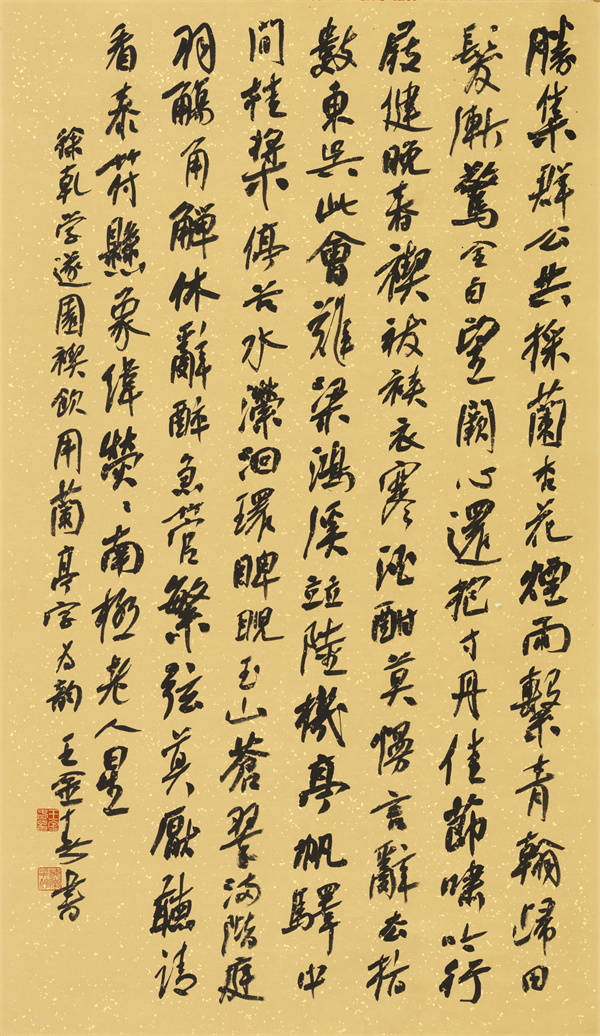 勝集群公共採蘭杏花煙雨繫青翰歸田
髮漸驚全白望闕心還抱寸丹佳節嘯吟行
屐健晚春禊祓裌衣寒酒酣莫慢言辭去指
數東吳此會難梁鴻溪竝陸機亭帆驛中
間桂槳停谷水瀠洄環睥睨玉山蒼翠滿階庭
羽觴角觶休辭醉急管繁弦莫厭聽請
看泰符懸象緯熒〻南極老人星
徐乾学遂園禊飲用蘭亭字为韵 王金春書